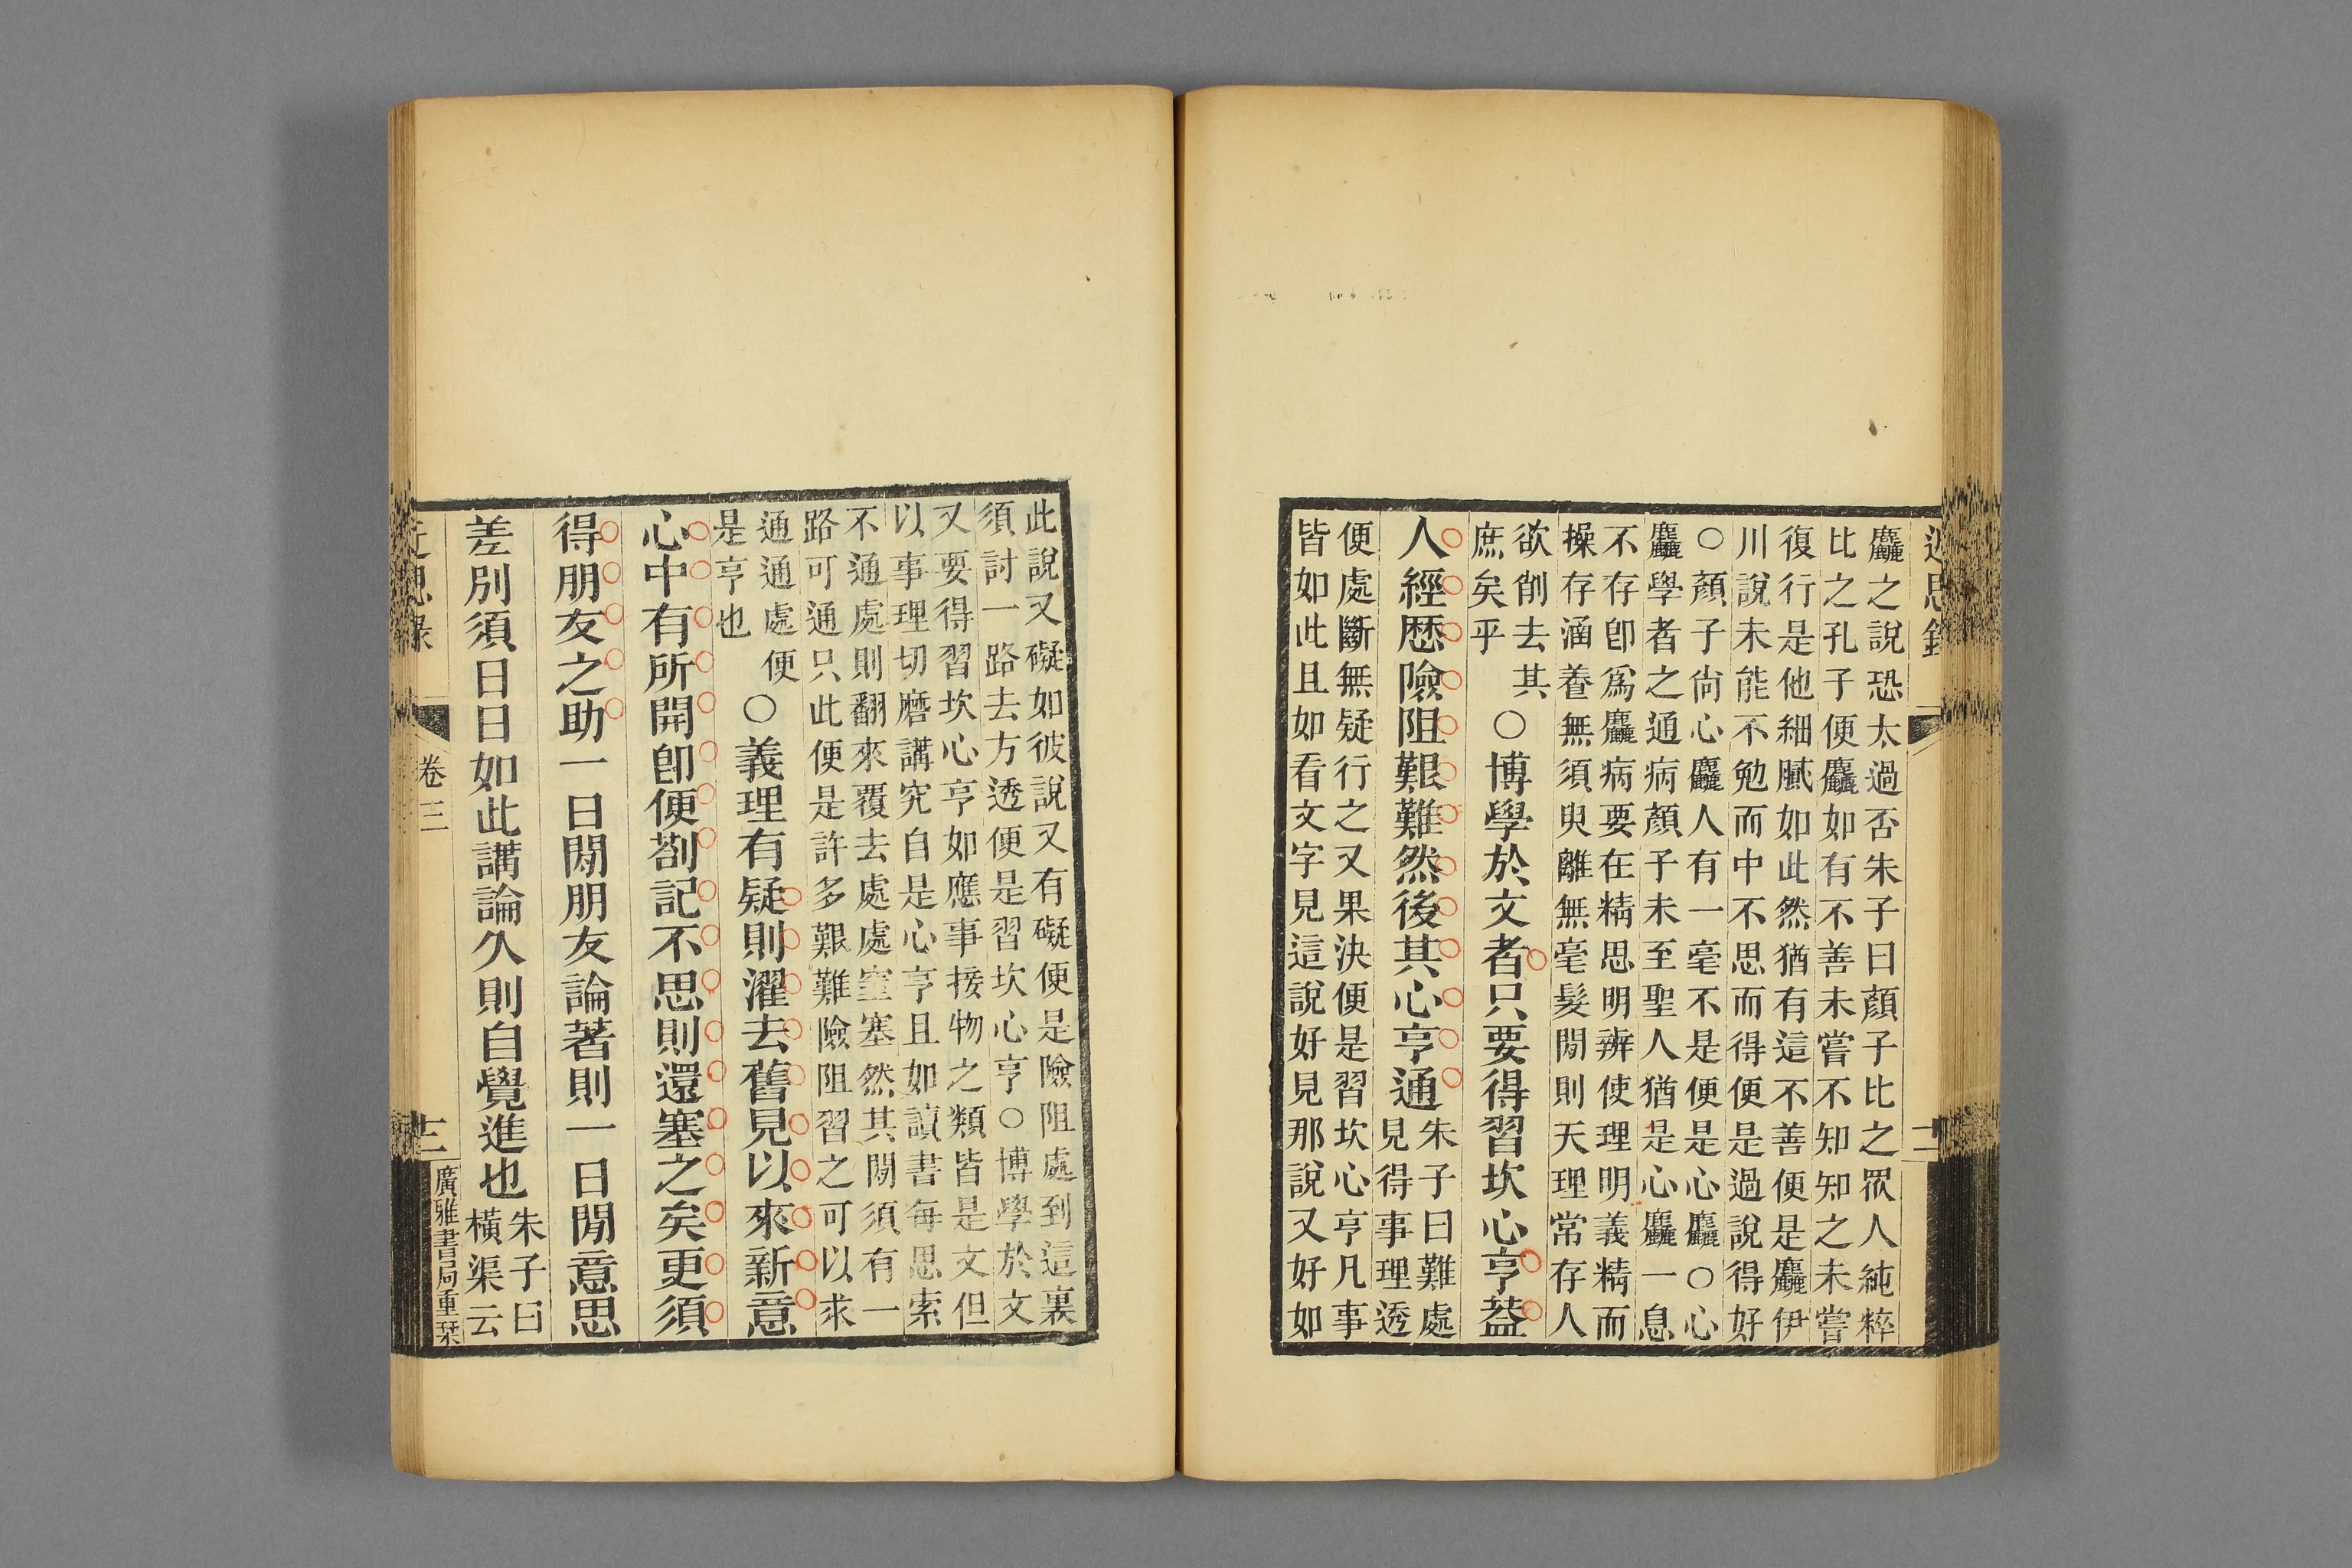 麤之說恐太過否朱子曰顏子比之眾人純粹
比之孔子便麤如有不善未嘗不知知之未嘗
復行是他細膩如此然猶有這不善便是麤伊
川說未能不勉而中不思而得便是過說得好
○顏子尙心麤人有一毫不是便是心麤○心
麤學者之通病顏子未至聖人猶是心麤一息
不存卽爲麤病要在精思明辨使理明義精而
操存涵養無須臾離無毫髮閒則天理常存人
欲削去其
庶矣乎
○博學於文者只要得習坎心亨葢
人經歷險阻艱難然後其心亨通
朱子曰難處
見得事理透
便處斷無疑行之又果決便是習坎心亨凡事
皆如此且如看文字見這說好見那說又好如
此說又礙如彼說又有礙便是險阻處到這裏
須討一路去方透便是習坎心亨○博學於文
又要得習坎心亨如應事接物之類皆是文但
以事理切磨講究自是心亨且如讀書每思索
不通處則翻來覆去處處窒塞然其閒須有一
路可通只此便是許多艱難險阻習之可以求
通通處便
是亨也
○義理有疑則濯去舊見以來新意
心中有所開卽便劄記不思則還塞之矣更須
得朋友之助一日閒朋友論著則一日閒意思
差別須日日如此講論久則自覺進也
朱子曰
橫渠云
卷三
廣雅書局重栞